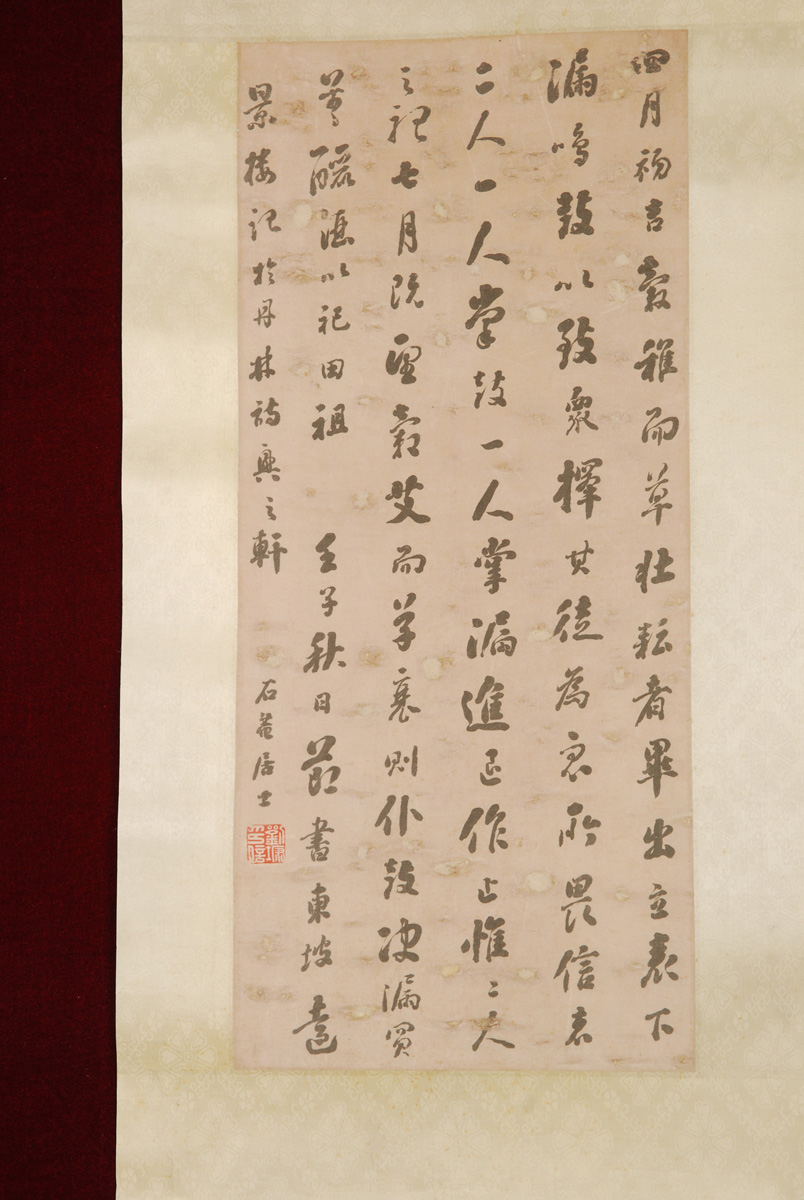 四月初吉穀稚而草壯耘者畢出立表下
漏鳴鼓以致衆擇其徒為衆所畏信者
二人一人掌鼓一人掌漏進退作止惟二人
之視七月既望穀艾而草衰則仆鼓決漏買
羊釃酒以祀田祖 壬子秋日節書東坡遠
景樓記於丹林詩興之軒
石菴居士